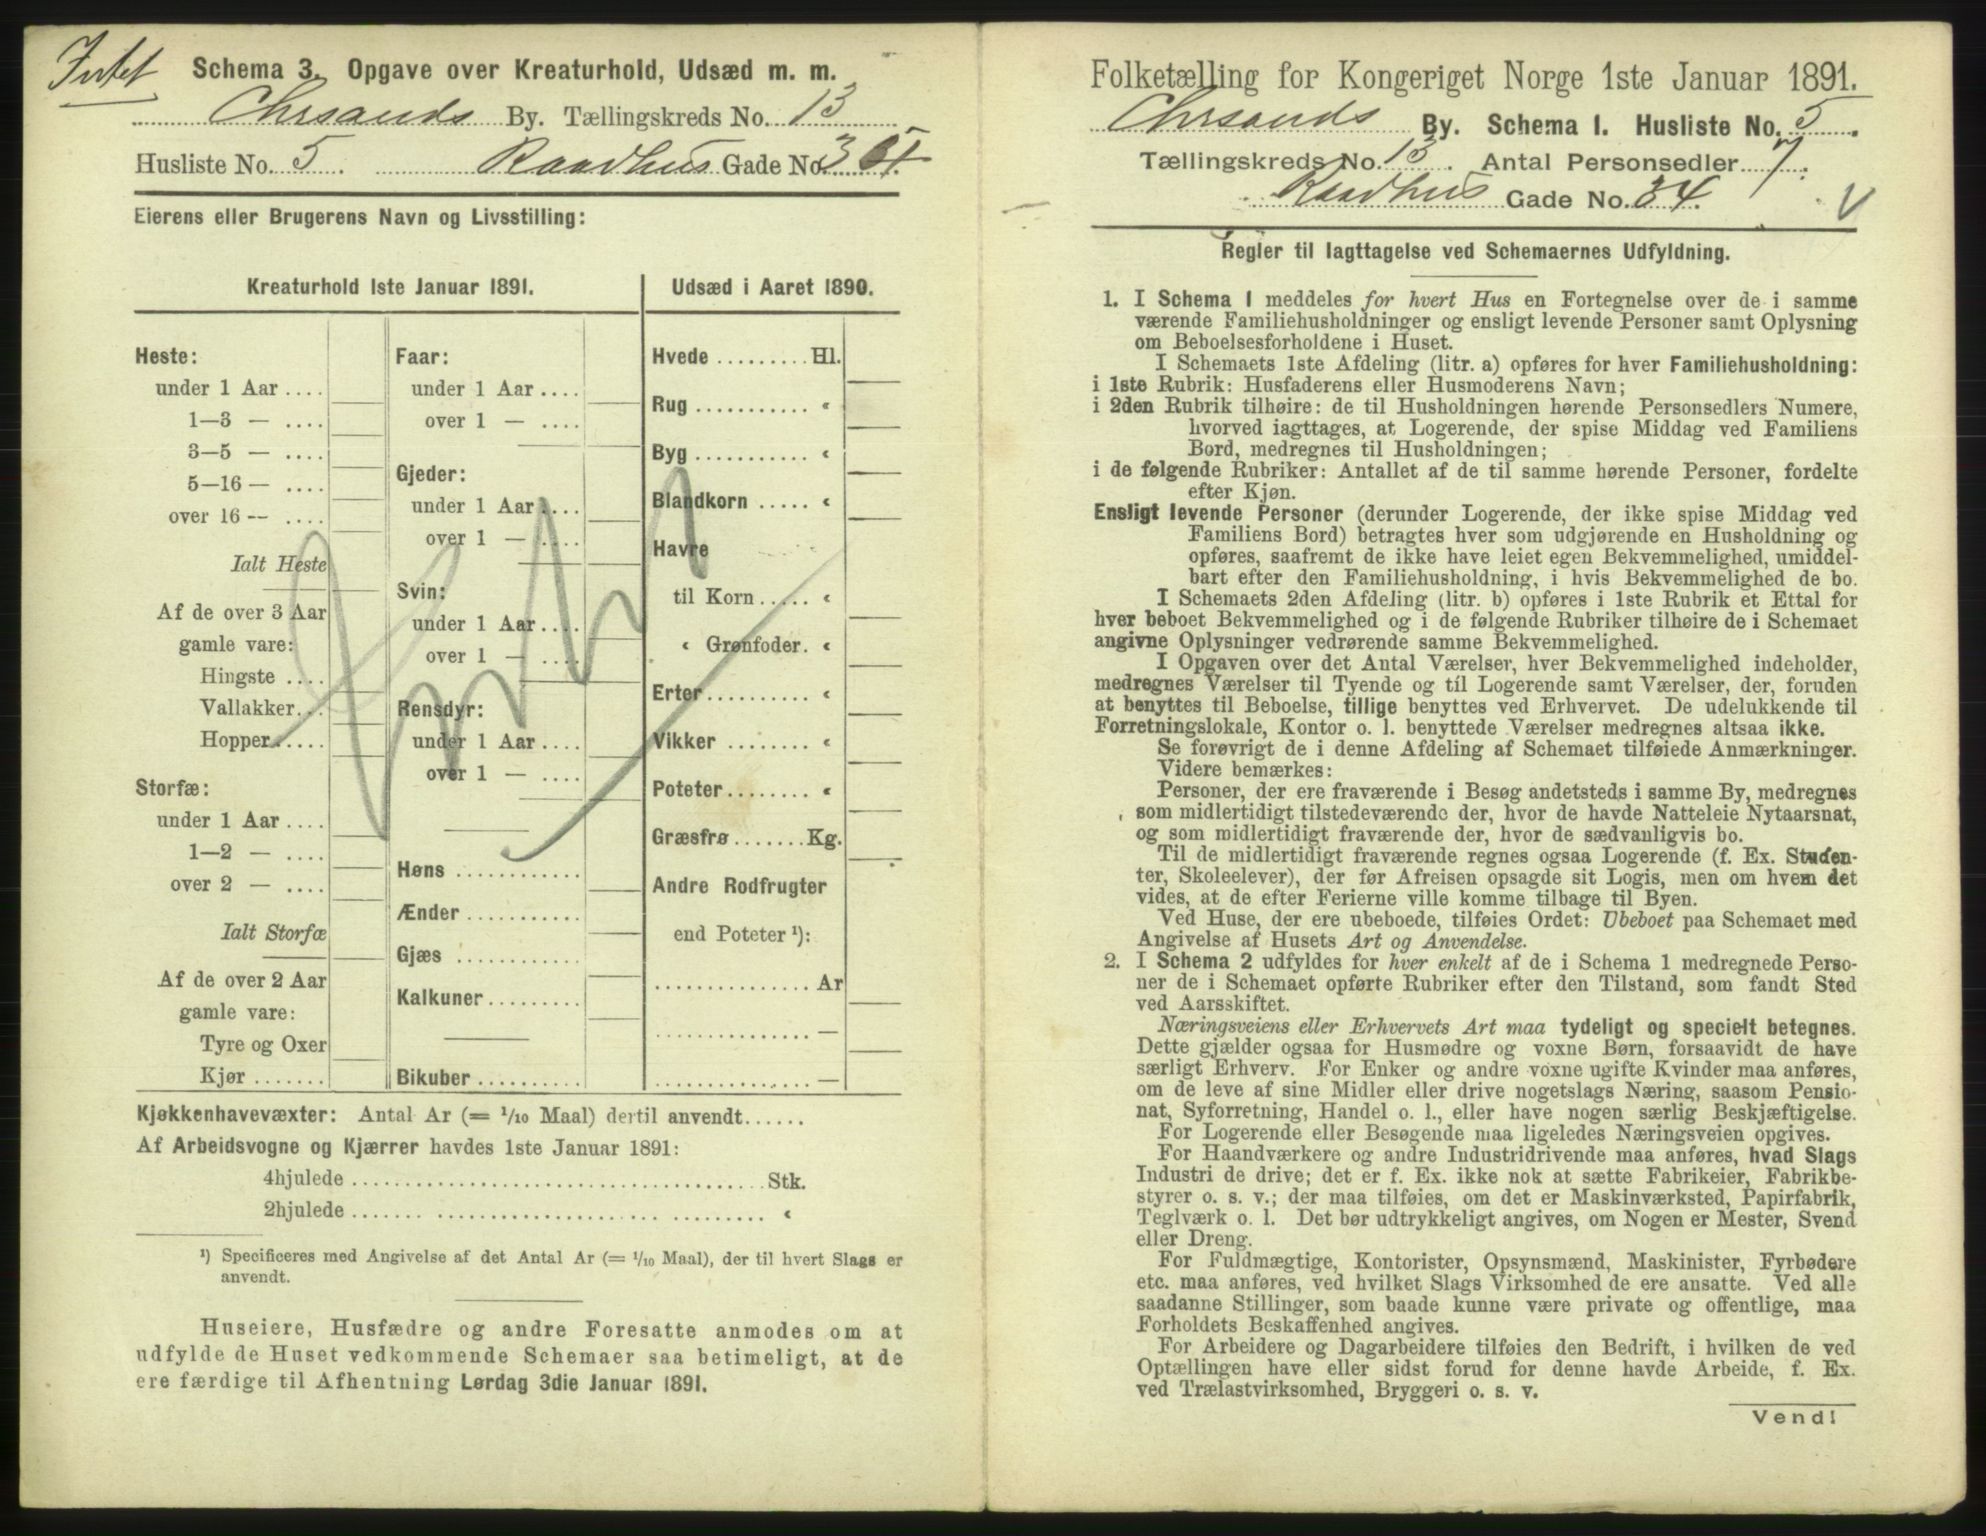 Intet
Schema 3. Opgave over Kreaturhold, Udsæd m. m.
Chrsands By. Tællingskreds No. 13
Husliste No. 5. Raadhus Gade No. 34.
Eierens eller Brugerens Navn og Livsstilling:
Kreaturhold 1ste Januar 1891.
Heste:
under 1 Aar ....
1—3 — ....
3—5 — ....
5—16 — ....
over 16 — ....
Ialt Heste
Af de over 3 Aar
gamle vare:
Hingste ....
Vallakker...
Hopper.....
Storfæ:
under 1 Aar ....
1—2 — ....
over 2 — ....
Ialt Storfæ
Af de over 2 Aar
gamle vare:
Tyre og Oxer
Kjør .......
Faar:
under 1 Aar ....
over 1 — ....
Gjeder:
under 1 Aar ....
over 1 — ....
Svin:
under 1 Aar ....
over 1 — ....
Rensdyr:
under 1 Aar ....
over 1 — ....
Høns ............
Ænder ...........
Gjæs ............
Kalkuner.........
Bikuber ..........
Udsæd i Aaret 1890.
Hvede ......... Hl.
Rug ........... «
Byg ........... «
Blandkorn ..... «
Havre
til Korn ..... «
« Grønfoder. «
Erter.......... «
Vikker ........ «
Poteter........ «
Græsfrø ....... Kg.
Andre Rodfrugter
end Poteter ¹):
............... Ar
............... —
............... —
Kjøkkenhavevæxter: Antal Ar (= 1/10 Maal) dertil anvendt......
Af Arbeidsvogne og Kjærrer havdes 1ste Januar 1891:
4hjulede ........................................ Stk.
2hjulede ........................................ «
¹) Specificeres med Angivelse af det Antal Ar (= 1/10 Maal), der til hvert Slags er
anvendt.
Huseiere, Husfædre og andre Foresatte anmodes om at
udfylde de Huset vedkommende Schemaer saa betimeligt, at de
ere færdige til Afhentning Lørdag 3die Januar 1891.
Folketælling for Kongeriget Norge 1ste Januar 1891.
Chrsands By. Schema I. Husliste No. 5.
Tællingskreds No. 13. Antal Personsedler 7.
Raadhus Gade No. 34.
Regler til Iagttagelse ved Schemaernes Udfyldning.
1. I Schema I meddeles for hvert Hus en Fortegnelse over de i samme
værende Familiehusholdninger og ensligt levende Personer samt Oplysning
om Beboelsesforholdene i Huset.
I Schemaets 1ste Afdeling (litr. a) opføres for hver Familiehusholdning:
i 1ste Rubrik: Husfaderens eller Husmoderens Navn;
i 2den Rubrik tilhøire: de til Husholdningen hørende Personsedlers Numere,
hvorved iagttages, at Logerende, der spise Middag ved Familiens
Bord, medregnes til Husholdningen;
i de følgende Rubriker: Antallet af de til samme hørende Personer, fordelte
efter Kjøn.
Ensligt levende Personer (derunder Logerende, der ikke spise Middag ved
Familiens Bord) betragtes hver som udgjørende en Husholdning og
opføres, saafremt de ikke have leiet egen Bekvemmelighed, umiddel-
bart efter den Familiehusholdning, i hvis Bekvemmelighed de bo.
I Schemaets 2den Afdeling (litr. b) opføres i 1ste Rubrik et Ettal for
hver beboet Bekvemmelighed og i de følgende Rubriker tilhøire de i Schemaet
angivne Oplysninger vedrørende samme Bekvemmelighed.
I Opgaven over det Antal Værelser, hver Bekvemmelighed indeholder,
medregnes Værelser til Tyende og til Logerende samt Værelser, der, foruden
at benyttes til Beboelse, tillige benyttes ved Erhvervet. De udelukkende til
Forretningslokale, Kontor o. l. benyttede Værelser medregnes altsaa ikke.
Se forøvrigt de i denne Afdeling af Schemaet tilføiede Anmærkninger.
Videre bemærkes:
Personer, der ere fraværende i Besøg andetsteds i samme By, medregnes
som midlertidigt tilstedeværende der, hvor de havde Natteleie Nytaarsnat,
og som midlertidigt fraværende der, hvor de sædvanligvis bo.
Til de midlertidigt fraværende regnes ogsaa Logerende (f. Ex. Studen-
ter, Skoleelever), der før Afreisen opsagde sit Logis, men om hvem det
vides, at de efter Ferierne ville komme tilbage til Byen.
Ved Huse, der ere ubeboede, tilføies Ordet: Ubeboet paa Schemaet med
Angivelse af Husets Art og Anvendelse.
2. I Schema 2 udfyldes for hver enkelt af de i Schema 1 medregnede Perso-
ner de i Schemaet opførte Rubriker efter den Tilstand, som fandt Sted
ved Aarsskiftet.
Næringsveiens eller Erhvervets Art maa tydeligt og specielt betegnes.
Dette gjælder ogsaa for Husmødre og voxne Børn, forsaavidt de have
særligt Erhverv. For Enker og andre voxne ugifte Kvinder maa anføres,
om de leve af sine Midler eller drive nogetslags Næring, saasom Pensio-
nat, Syforretning, Handel o. l., eller have nogen særlig Beskjæftigelse.
For Logerende eller Besøgende maa ligeledes Næringsveien opgives.
For Haandværkere og andre Industridrivende maa anføres, hvad Slags
Industri de drive; det er f. Ex. ikke nok at sætte Fabrikeier, Fabrikbe-
styrer o. s. v.; der maa tilføies, om det er Maskinværksted, Papirfabrik,
Teglværk o. l. Det bør udtrykkeligt angives, om Nogen er Mester, Svend
eller Dreng.
For Fuldmægtige, Kontorister, Opsynsmænd, Maskinister, Fyrbødere
etc. maa anføres, ved hvilket Slags Virksomhed de ere ansatte. Ved alle
saadanne Stillinger, som baade kunne være private og offentlige, maa
Forholdets Beskaffenhed angives.
For Arbeidere og Dagarbeidere tilføies den Bedrift, i hvilken de ved
Optællingen have eller sidst forud for denne havde Arbeide, f. Ex.
ved Trælastvirksomhed, Bryggeri o. s. v.
Vend!